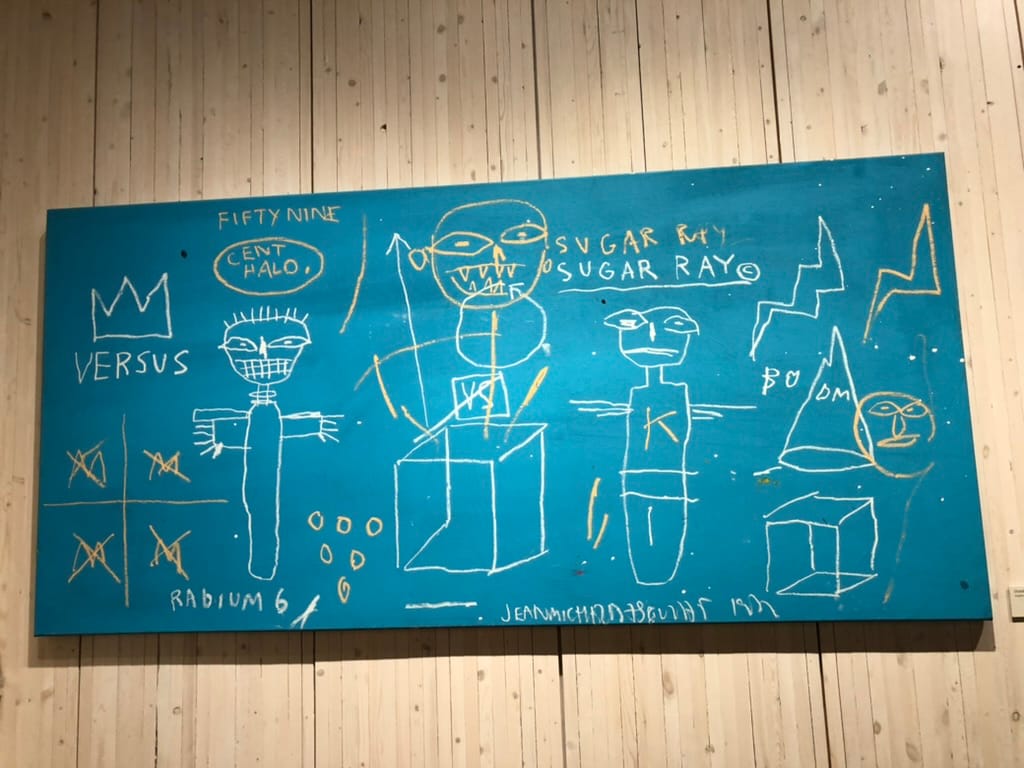 FIFTY NINE
CENT
HALO.
SUGAR RAY
SUGAR RAY©
VERSUS
VS
BO
DM
K
RADIUM 6
JEAN MICHEL BASQUIAT